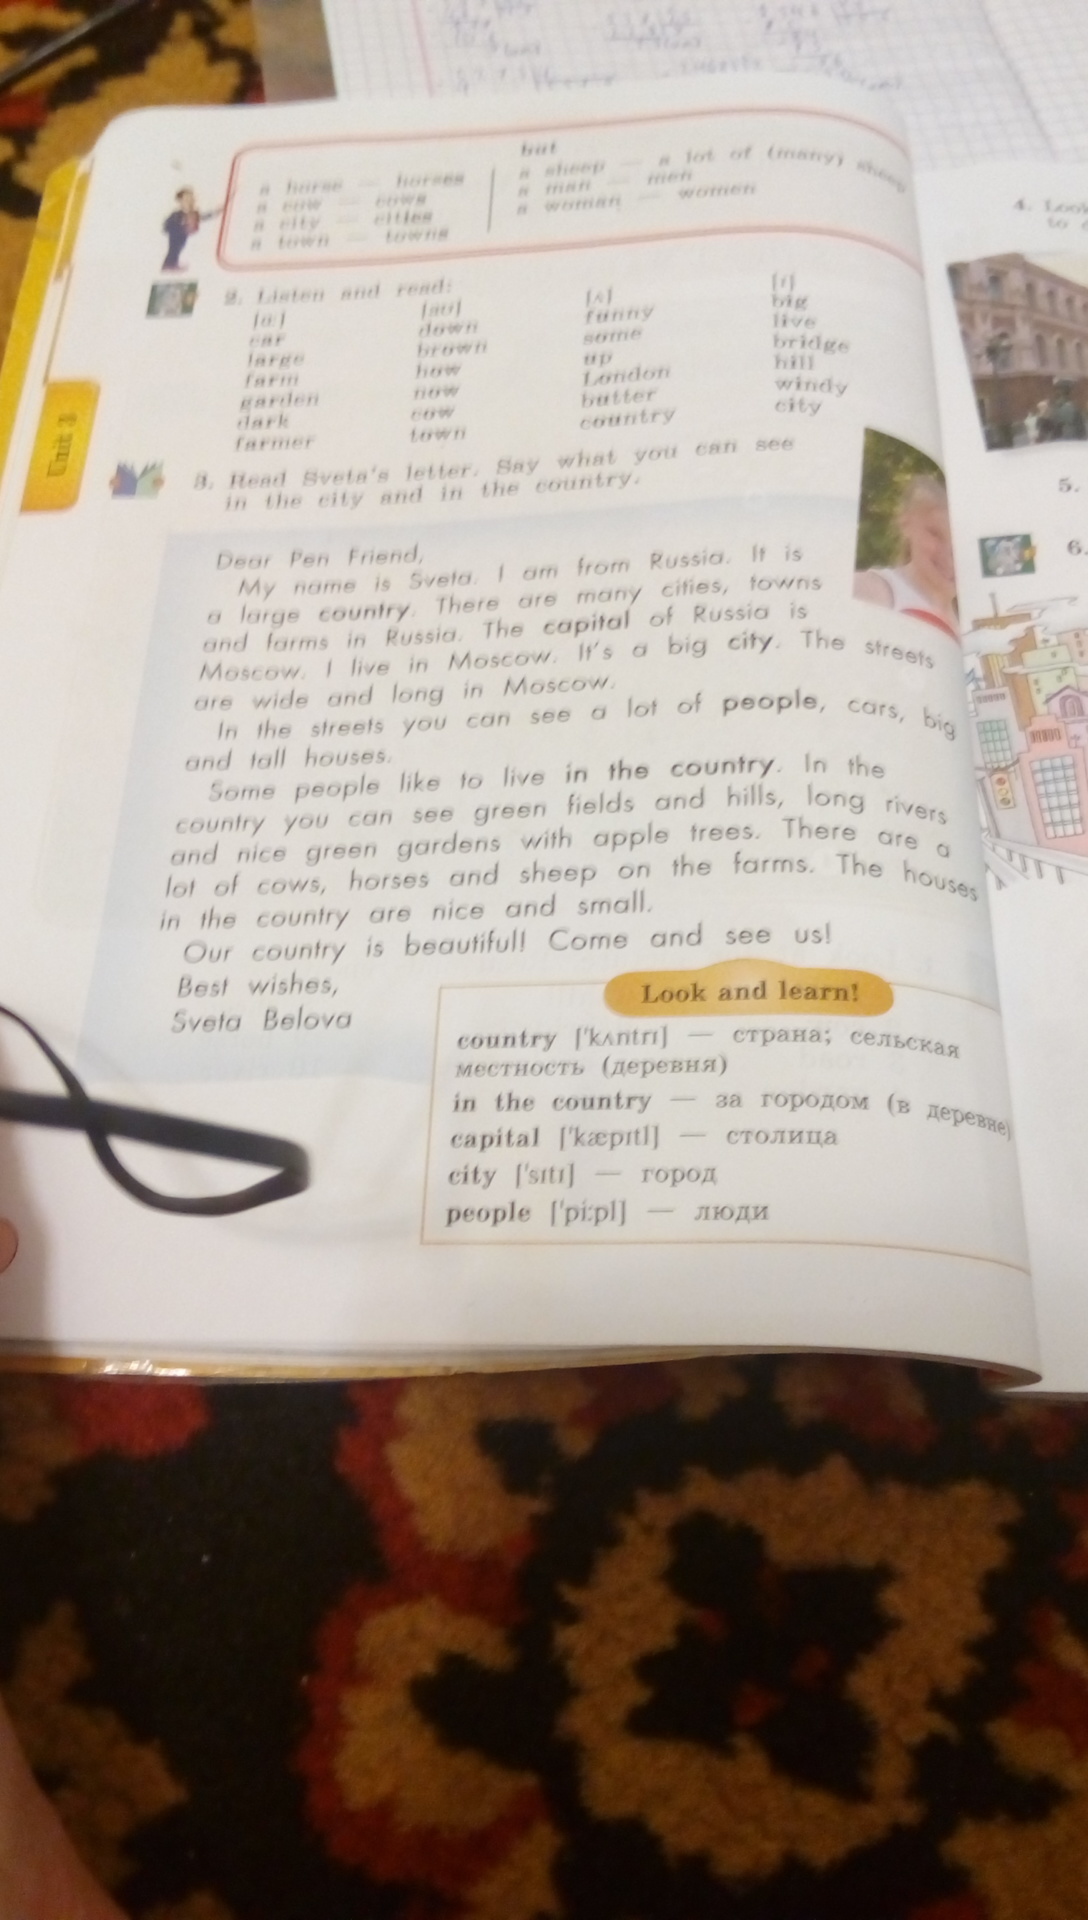 but
a horse — horses
a cow — cows
a city — cities
a town — towns
a sheep — a lot of (many) sheep
a man — men
a woman — women
Unit 3
2. Listen and read:
[ɑ:]
car
large
farm
garden
dark
farmer
[aʊ]
down
brown
how
now
cow
town
[ʌ]
funny
some
up
London
butter
country
[ɪ]
big
live
bridge
hill
windy
city
3. Read Sveta's letter. Say what you can see
in the city and in the country.
Dear Pen Friend,
My name is Sveta. I am from Russia. It is
a large country. There are many cities, towns
and farms in Russia. The capital of Russia is
Moscow. I live in Moscow. It's a big city. The streets
are wide and long in Moscow.
In the streets you can see a lot of people, cars, big
and tall houses.
Some people like to live in the country. In the
country you can see green fields and hills, long rivers
and nice green gardens with apple trees. There are a
lot of cows, horses and sheep on the farms. The houses
in the country are nice and small.
Our country is beautiful! Come and see us!
Best wishes,
Sveta Belova
Look and learn!
country ['kʌntrɪ] — страна; сельская
местность (деревня)
in the country — за городом (в деревне)
capital ['kæpɪtl] — столица
city ['sɪtɪ] — город
people ['pi:pl] — люди
4. Look
to
5.
6.